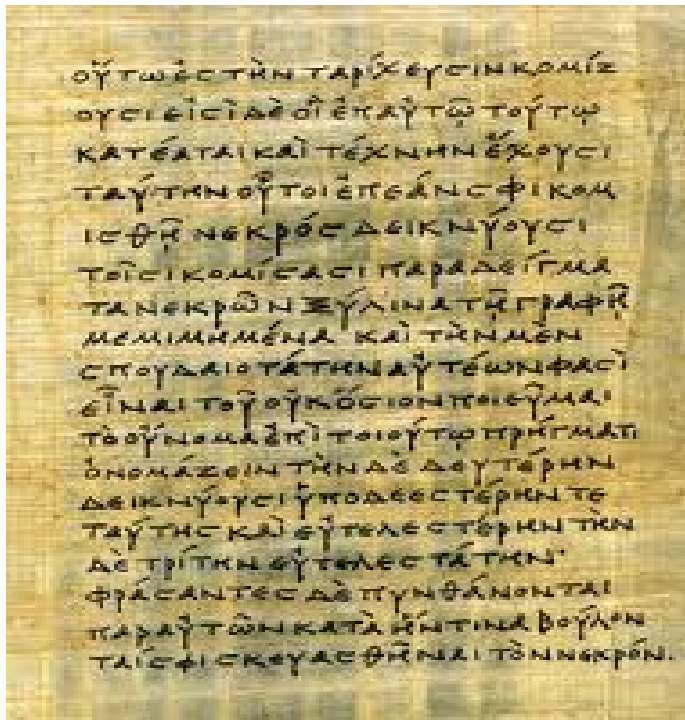 οὕτω ἐς τὴν ταρίχευσιν κομίζ
ουσι εἰσὶ δὲ οἳ ἐπ αὐτῷ τούτῳ
κατέαται καὶ τέχνην ἔχουσι
ταύτην οὗτοι ἐπεάν σφι κομ
ισθῇ νεκρός δεικνύουσι
τοῖσι κομίσασι παραδείγμα
τα νεκρῶν ξύλινα τῇ γραφῇ
μεμιμημένα καὶ τὴν μὲν
σπουδαιοτάτην αὐτέων φασὶ
εἶναι τοῦ οὐκ ὅσιον ποιεῦμαι
τὸ οὔνομα ἐπὶ τοιούτῳ πρήγματι
ὀνομάζειν τὴν δὲ δευτέρην
δεικνύουσι ὑποδεεστέρην τε
ταύτης καὶ εὐτελεστέρην τὴν
δὲ τρίτην εὐτελεστάτην·
φράσαντες δὲ πυνθάνονται
παρ αὐτῶν κατὰ ἥντινα βούλον
ταί σφι σκευασθῆναι τὸν νεκρόν.